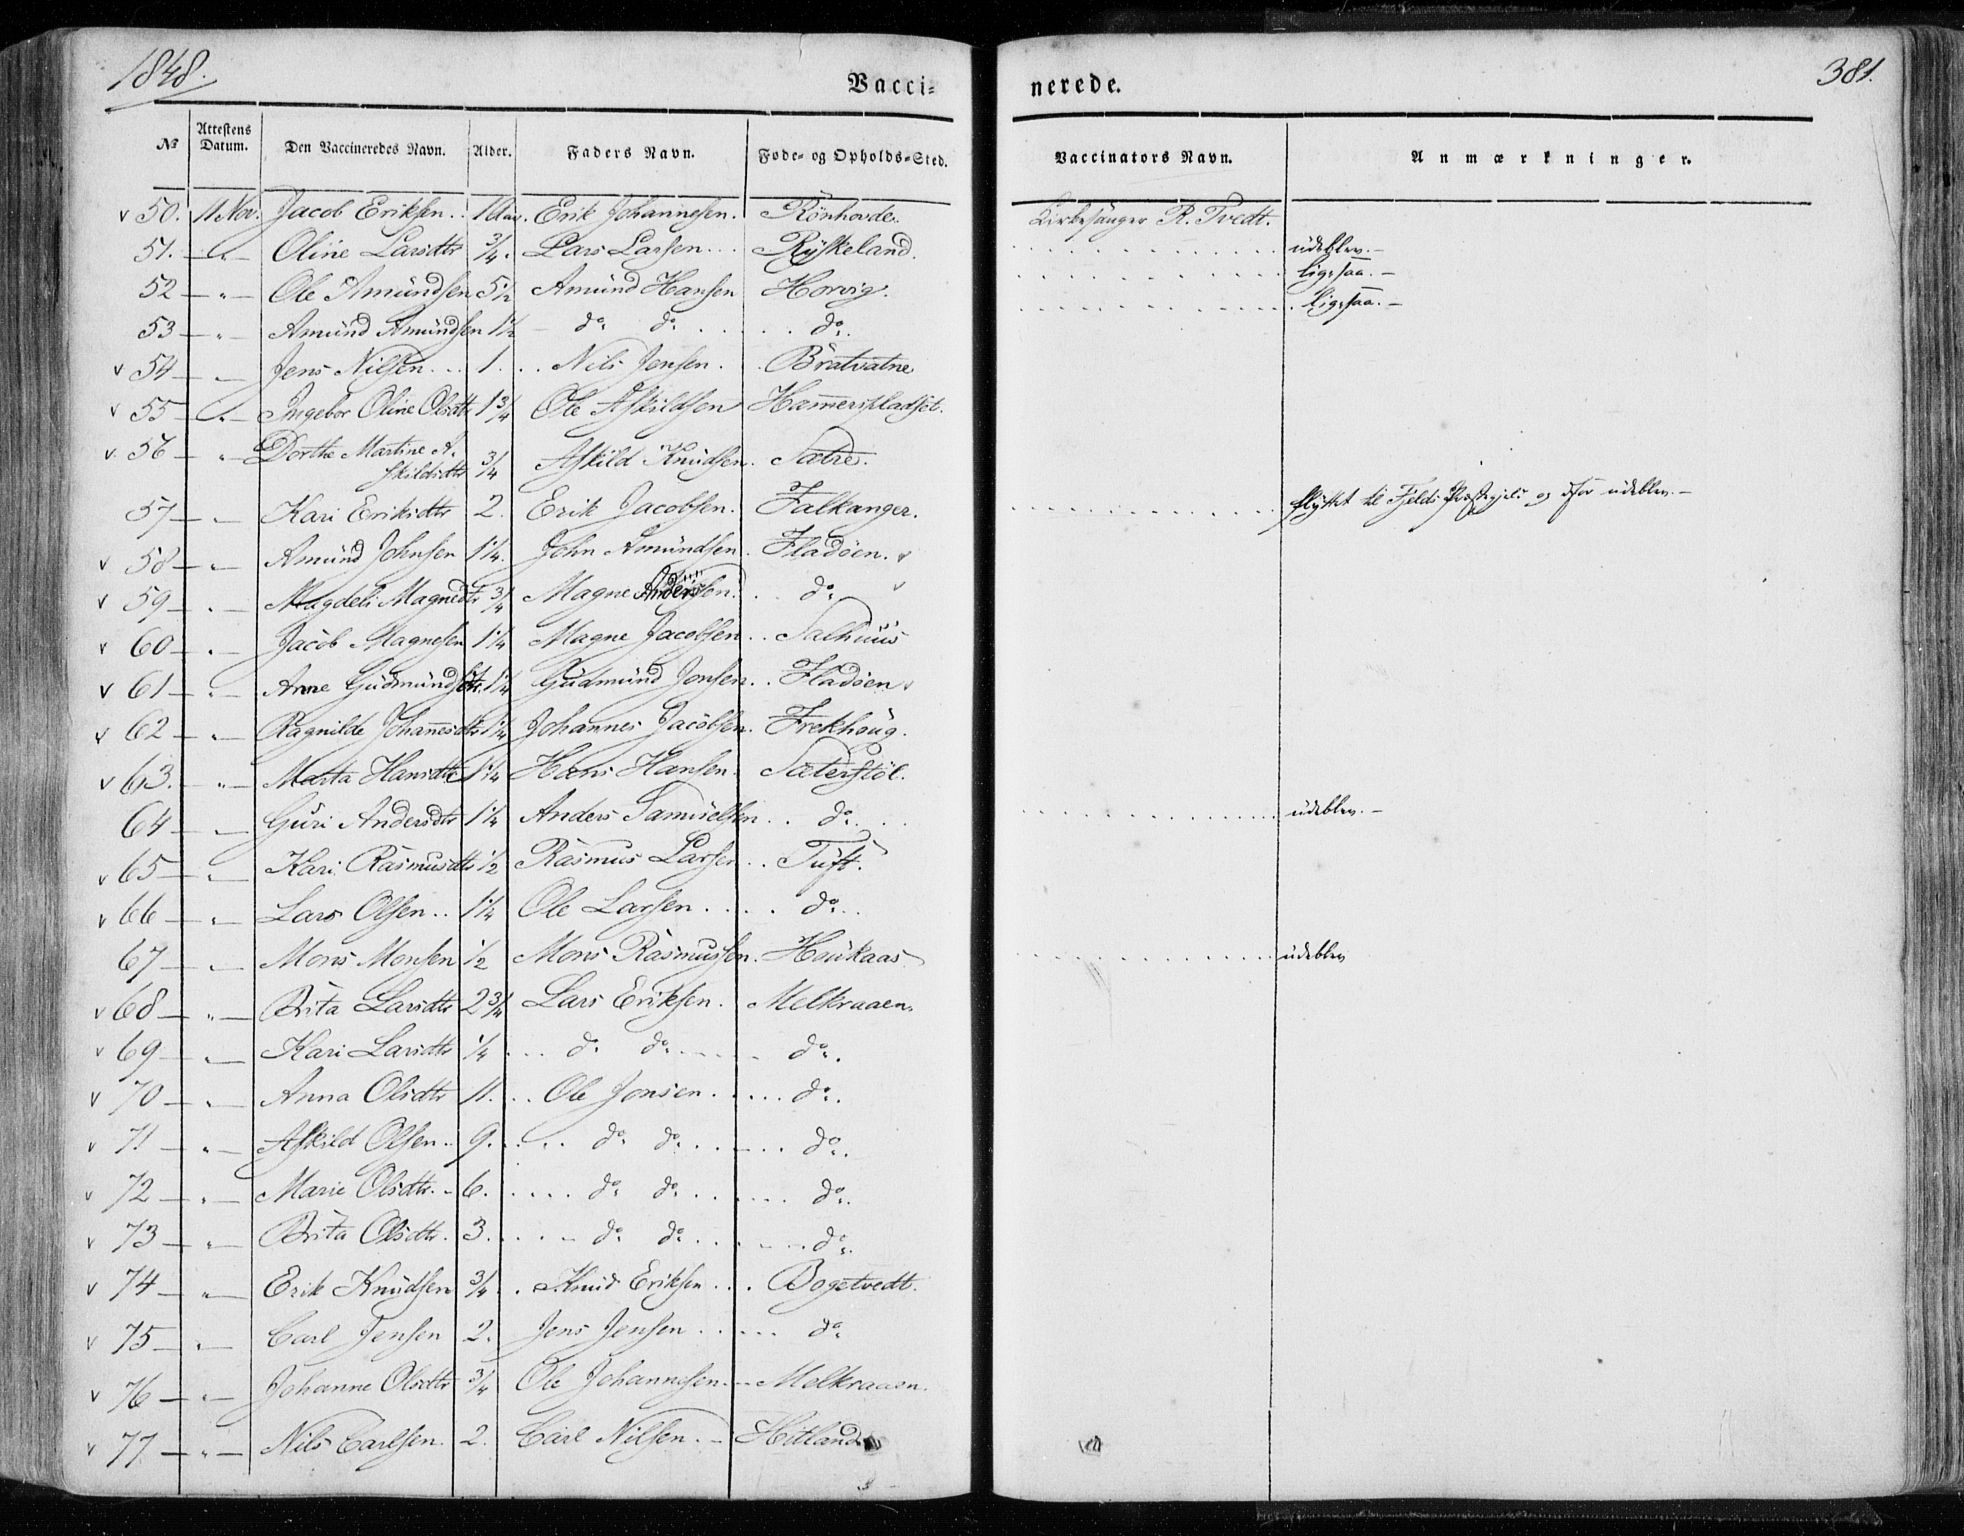 1848.
Vacci-
nerede.
381.
№ Attestens Datum. Den Vaccineredes Navn. Alder. Faders Navn. Føde- og Opholds-Sted. Vaccinators Navn. Anmærkninger.
v 50. 11 Nov. Jacob Eriksen. 1 Erik Johannesen. Rönhovde. Kirkesanger R. Tvedt.
51. — „ — Oline Larsdtr 3/4. Lars Larsen Ryskeland. udeblev. —
52 — „ — Ole Amundsen 5 1/2 Amund Hansen Horvig. ligesaa. —
53 — „ — Amund Amundsen 1 1/2 — do do do. ligesaa. —
v 54 — „ — Jens Nilsen 1. Nils Jensen. Bratvatne
v 55 — „ — Ingebor Oline Olsdtr 1 3/4 Ole Askildsen Hammerspladset.
v. 56 — „ — Dorthe Martine A- skildsdtr 3/4 Askild Knudsen. Sætre.
57 — „ — Kari Eriksdtr 2. Erik Jacobsen. Falkanger. flyttet til Fjelds Præstegjeld og dfor udeblev. —
v 58 — „ — Amund Johnsen 1 1/4. John Amundsen. Fladöen. v
v 59 — „ — Magdeli Magnedtr 3/4 Magne Andersen. do. v
v 60 — „ — Jacob Magnesen 1 1/4 Magne Jacobsen. Salhuus
v 61 — „ — Anne Gudmundsdtr. 1 1/4 Gudmund Jonsen. Fladöen v
v 62 — „ — Ragnilde Johannesdtr 1 1/4 Johannes Jacobsen. Frekhoug.
v 63. — „ — Marta Hansdtr 1 1/4 Hans Hansen. Sæterstöl.
64 — „ — Guri Andersdtr 1 1/4 Anders Samuelsen do. udeblev. —
v 65 — „ — Kari Rasmusdtr 1/2 Rasmus Larsen Tuft.
v 66 — „ — Lars Olsen 1 1/4 Ole Larsen do.
67 — „ — Mons Monsen 1/2 Mons Rasmussen. Haukaas udeblev
v 68 — „ — Brita Larsdtr 2 3/4 Lars Eriksen. Melkraaen.
v 69 — „ — Kari Larsdtr 1/4 do do do.
v 70 — „ — Anna Olsdtr 11. Ole Jonsen do.
v 71 — „ — Askild Olsen 9. do do do.
v 72 — „ — Marie Olsdtr. 6. do do do.
v 73 — „ — Brita Olsdtr. 3. do do do.
v 74 — „ — Erik Knudsen 3/4. Knud Eriksen Bogetvedt.
v 75 — „ — Carl Jensen 2. Jens Jensen do
v 76 — „ — Johanne Olsdtr 3/4 Ole Johannesen Melkraaen.
v 77 — „ — Nils Carlsen. 2. Carl Nilsen. — Hitland